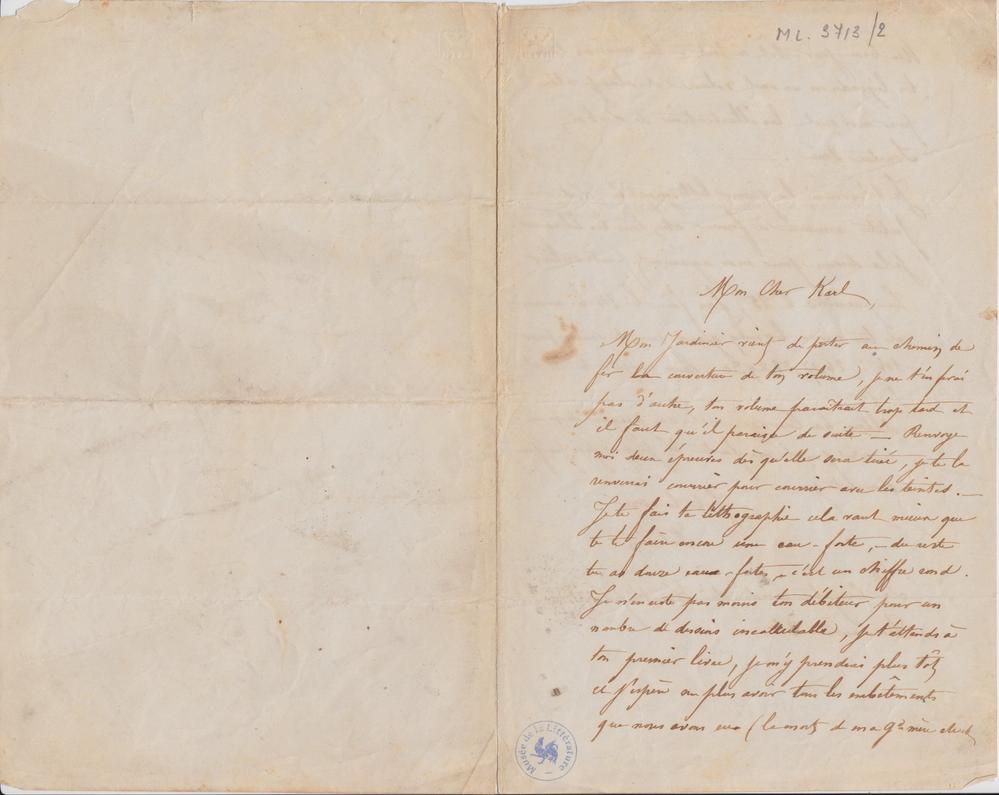 M.L. 3713/2
Mon Cher Karl,
Mon Jardinier vient de porter au chemin de
fer la couverture de ton volume, je ne t'en ferai
pas d'autre, ton volume paraîtrait trop tard et
il faut qu'il paraisse de suite — Renvoye
moi deux épreuves dès qu'elle sera tirée, je te la
renverrai courrier pour courrier avec les teintes. —
Je te fais ta lithographie cela vaut mieux que
te faire encore une eau-forte, — du reste
tu as douze eaux-fortes, c'est un chiffre rond.
Je n'en reste pas moins ton débiteur pour un
nombre de dessins incalculable, je t'attends à
ton premier livre, je m'y prendrai plus tôt
et j'espère ne plus avoir tous les embêtements
que nous avons eus (la mort de ma Gd mère
Musée de la Littérature